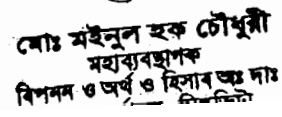 মোঃ মইনুন হক চৌধুরী
মহাব্যবস্থাপক
বিপনন ও অর্থ ও হিসাব অঃ দাঃ